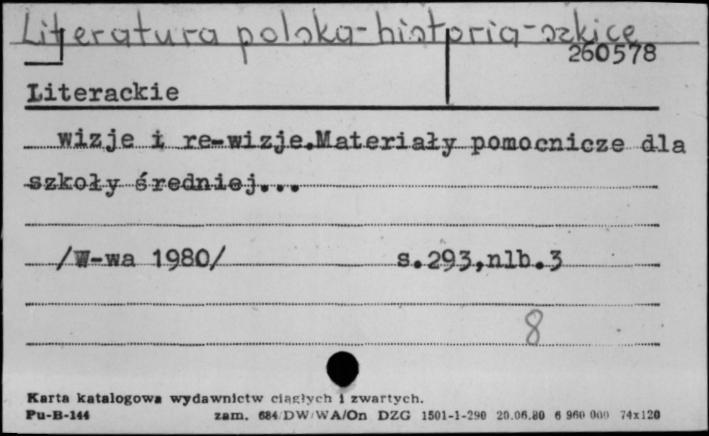 Literatura polska-historia-szkice
260578
Literackie
wizje i re-wizje.Materiały pomocnicze dla
szkoły średniej...
/W-wa 1980/ s.293,nlb.3
8
Karta katalogowa wydawnictw ciągłych i zwartych.
Pu-B-144 zam. 684/DW/WA/On DZG 1501-1-290 20.06.80 6 960 000 74x120